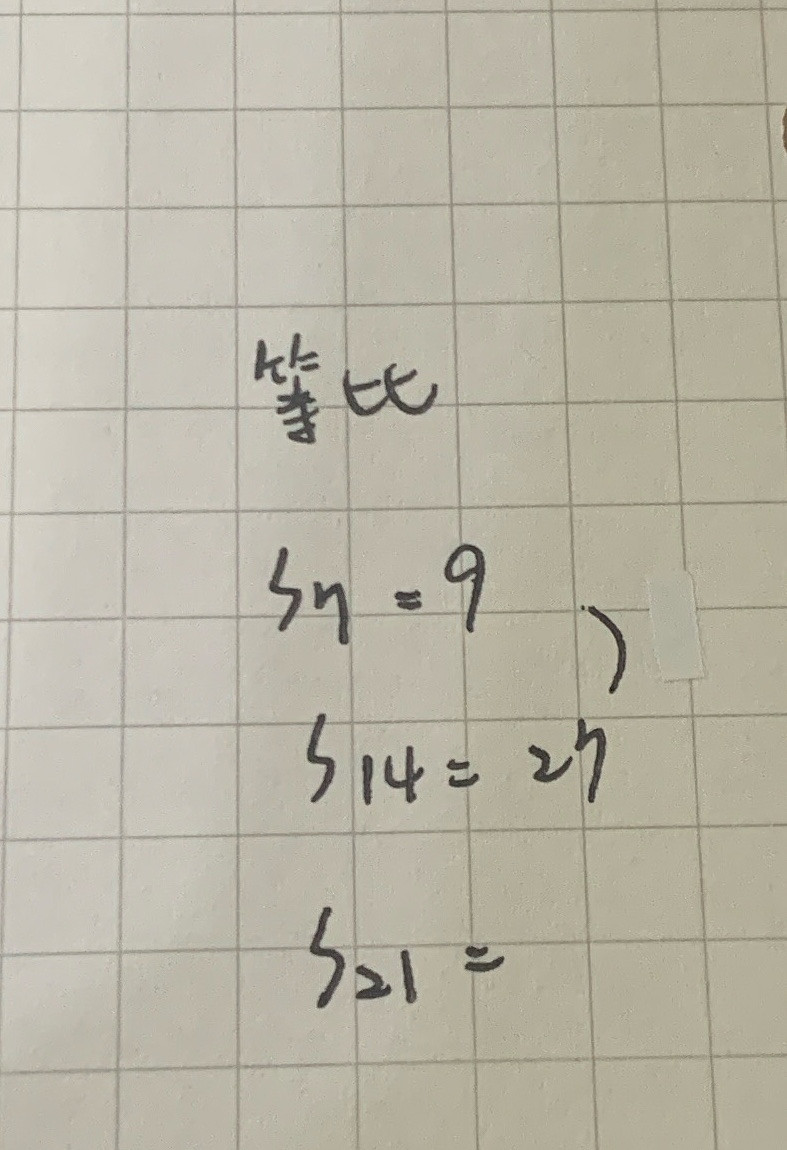 等比
S7 = 9
)
S14 = 27
S21 =